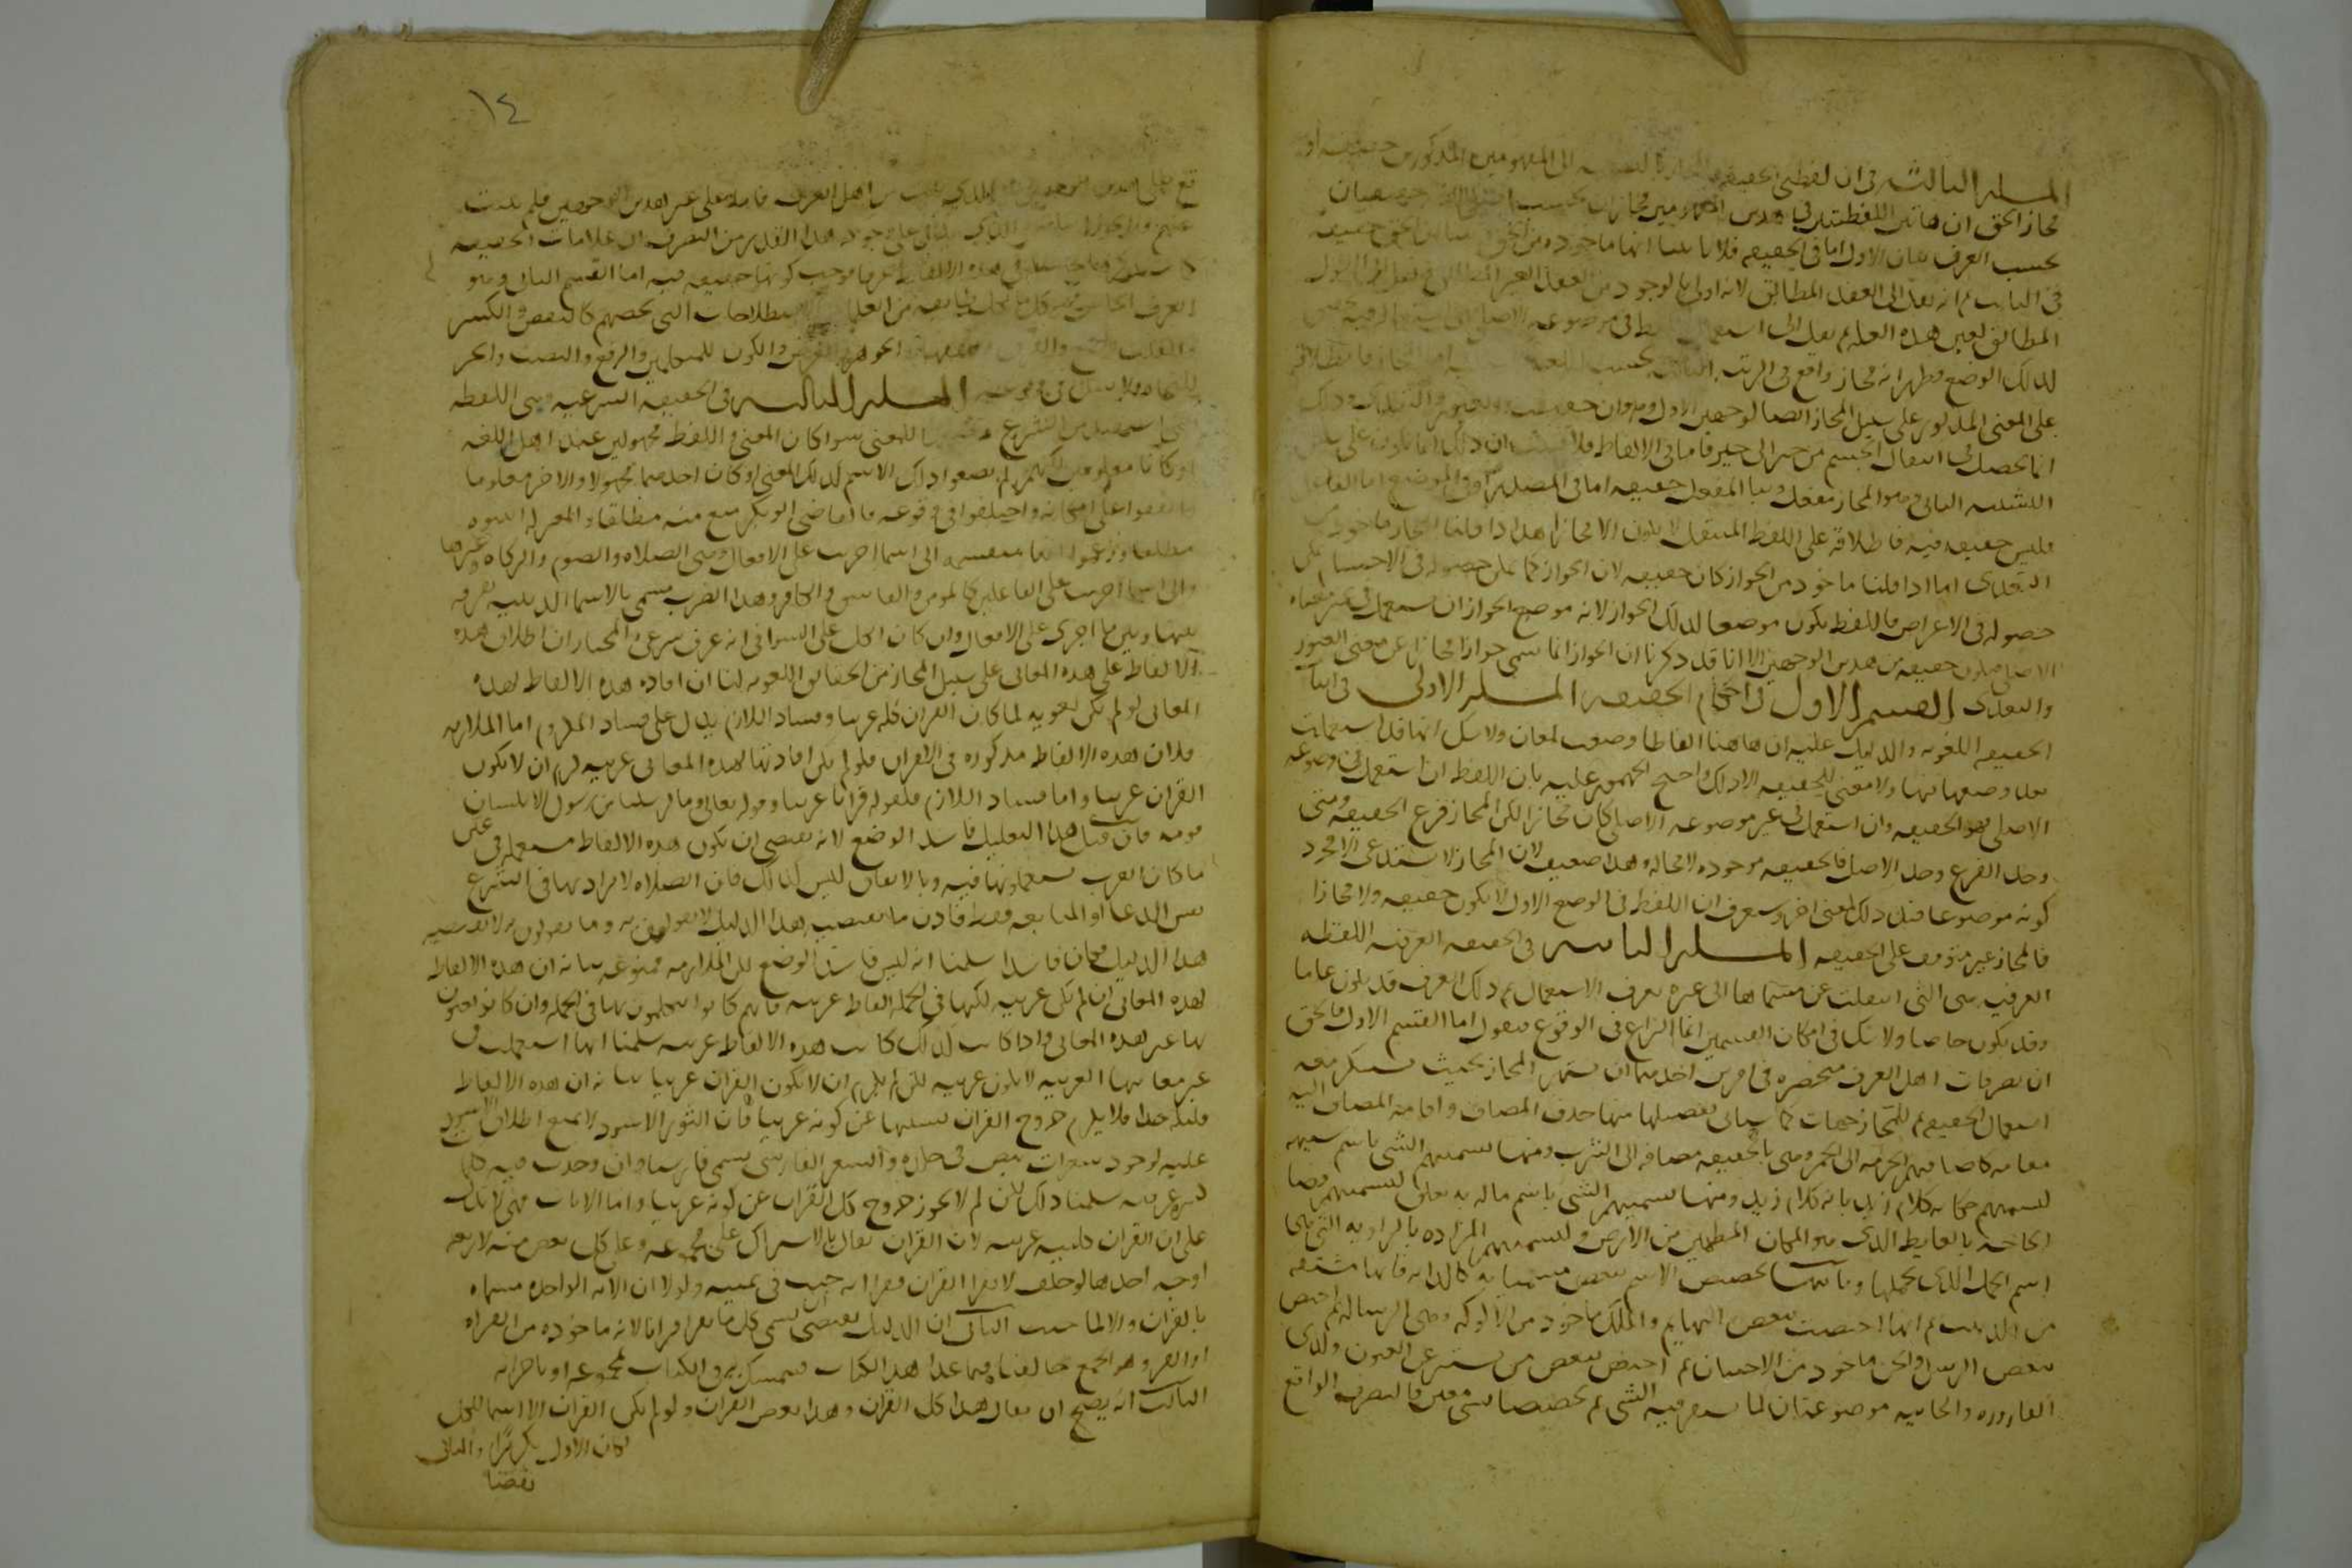 المسله الثالثه في ان لفظتي الحقيقه والمجاز بالنسبه الى المفهومين المذكورين حقيقه او
مجاز الحق ان هاتين اللفظتين في هذين المفهومين مجازان بحسب اصل اللغه حقيقتان
بحسب العرف بيان الاول اما في الحقيقه فلانا بينا انها ماخوذه من الحق
في الثابت ثم انه نقل الى العقد المطابق لانه اولى بالوجود من العقد الغير المطابق ثم نقل الى القول
المطابق لعين هذه العله ثم نقل الى استعمال اللفظ في موضوعه الاصلي
لذلك الوضع فظهر انه مجاز واقع في الرتبه الثالثه بحسب اللغه
على المعنى المذكور على سبيل المجاز ايضا لوجهين الاول
انما يحصل في انتقال الجسم من حيز الى حيز فاما في الالفاظ فلا فثبت ان ذلك انما يكون على سبيل
التشبيه الثاني وهو المجاز مفعل وبنا المفعل حقيقه اما في المصدر او في الموضع اما الفاعل
فليس حقيقه فيه فاطلاقه على اللفظ المنتقل لا يكون الا مجازا هذا اذا قلنا المجاز ماخوذ من
التعدي اما اذا قلنا ماخوذ من الجواز كان حقيقه لان الجواز كما يمكن حصوله في الاجسام يمكن
حصوله في الاعراض فاللفظ يكون موضعا لذلك الجواز لانه موضع الجواز ان يستعمل في غير معناه
الاصلي فيكون حقيقه من هذين الوجهين الا انا قد ذكرنا ان الجواز انما سمي جوازا مجازا عن معنى العبور
والتعدي القسم الاول في احكام الحقيقه المسله الاولى في اثبات
الحقيقه اللغويه والدليل عليه ان هاهنا الفاظا وضعت لمعان ولا شك انها قد استعملت
بعد وضعها فيها ولا معنى للحقيقه الا ذلك واحتج الجمهور عليه بان اللفظ ان استعمل في موضوعه
الاصلي فهو الحقيقه وان استعمل في غير موضوعه الاصلي كان مجازا لكن المجاز فرع الحقيقه ومتى
وجد الفرع وجد الاصل فالحقيقه موجوده لا محاله وهذا ضعيف لان المجاز لا يستدعي الا مجرد
كونه موضوعا قبل ذلك لمعنى اخر وستعرف ان اللفظ في الوضع الاول لا يكون حقيقه ولا مجازا
فالمجاز غير متوقف على الحقيقه المسله الثانيه في الحقيقه العرفيه اللفظه
العرفيه هي التي انتقلت عن مسماها الى غيره بعرف الاستعمال ثم ذلك العرف قد يكون عاما
وقد يكون خاصا ولا شك في امكان القسمين انما النزاع في الوقوع فنقول اما القسم الاول فالحق
ان تصرفات اهل العرف منحصره في امرين احدهما ان يشتهر المجاز بحيث يستنكر معه
استعمال الحقيقه ثم للمجاز جهات كما سياتي تفصيلها منها حذف المضاف واقامه المضاف اليه
مقامه كاضافتهم الحرمه الى الخمر وهي بالحقيقه مضافه الى الشرب ومنها تسميتهم الشي باسم شبيهه
كتسميتهم حكايه كلام زيد بانه كلام زيد ومنها تسميتهم الشي باسم ما له به تعلق كتسميتهم قضا
الحاجه بالغايط الذي هو المكان المطمين من الارض وتسميتهم المزاده بالراويه التي هي
اسم الجمل الذي يحملها وثانيهما تخصيص الاسم ببعض مسمياته كالدابه فانها مشتقه
من الدبيب ثم انها اختصت ببعض البهايم والملك ماخوذ من الالوكه وهي الرساله ثم اختص
ببعض الرسل والجن ماخوذ من الاجتنان ثم اختص ببعض من يستتر عن العيون ولذا
القاروره والخابيه موضوعتان لما يستقر فيه الشي ثم تخصصا بشي معين فالتصرف الواقع
١٤
اهل العرف فاما على غير هذين الوجهين فلم يثبت
عنهم على وجود هذا القدر من التصرف ان علامات الحقيقه
كونها حقيقه فيه اما القسم الثاني وهو
العرف الخاص فهو كل ما لكل طايفه من العلما من الاصطلاحات التي تخصهم كالنقض والكسر
والقلب والجمع والفرق للفقها والجوهر والعرض والكون للمتكلمين والرفع والنصب والجر
للنحاه ولا شك في وقوعه المسله الثالثه في الحقيقه الشرعيه وهي اللفظه
التي استفيد من الشرع وضعها للمعنى سوا كان المعنى واللفظ مجهولين عند اهل اللغه
او كانا معلومين لكنهم لم يضعوا ذلك الاسم لذلك المعنى او كان احدهما مجهولا والاخر معلوما
واتفقوا على امكانه واختلفوا في وقوعه فالقاضي ابو بكر منع منه مطلقا والمعتزله اثبتوه
مطلقا وزعموا انها منقسمه الى اسما اجريت على الافعال وهي الصلاه والصوم والزكاه وغيرها
والى اسما اجريت على الفاعلين كالمومن والفاسق والكافر وهذا الضرب يسمى بالاسما الدينيه تفرقه
بينها وبين ما اجري على الافعال وان كان الكل على السوا في انه عرف شرعي والمختار ان اطلاق هذه
الالفاظ على هذه المعاني على سبيل المجاز من الحقايق اللغويه لنا ان افاده هذه الالفاظ لهذه
المعاني لو لم يكن لغويه لما كان القران كله عربيا وفساد اللازم يدل على فساد الملزوم اما الملازمه
فلان هذه الالفاظ مذكوره في القران فلو لم يكن افادتها لهذه المعاني عربيه لزم ان لا يكون
القران عربيا واما فساد اللازم فلقوله قرانا عربيا وقوله تعالى وما ارسلنا من رسول الا بلسان
قومه فان قيل هذا الدليل فاسد الوضع لانه يقتضي ان يكون هذه الالفاظ مستعمله في عين
ما كان العرب يستعملونها فيه وبالاتفاق ليس كذلك فان الصلاه لا يراد بها في الشرع
نفس الدعا او المتابعه فقط فاذن ما يقتضيه هذا الدليل لا يقولون به وما يقولون به لا يقتضيه
هذا الدليل فكان فاسدا سلمنا انه ليس فاسد الوضع لكن الملازمه ممنوعه بيانه ان هذه الالفاظ
لهذه المعاني ان لم تكن عربيه لكنها في الجمله الفاظ عربيه فانهم كانوا يتكلمون بها في الجمله وان كانوا يعنون
بها غير هذه المعاني واذا كان كذلك كانت هذه الالفاظ عربيه سلمنا انها استعملت في
غير معانيها العربيه لا يكون عربيه لكن لم يلزم ان لا يكون القران عربيا بيانه ان هذه الالفاظ
قليله جدا فلا يلزم خروج القران بسببها عن كونه عربيا فان الثور الاسود لا يمتنع اطلاق الاسود
عليه لوجود شعرات بيض في جلده والشعر الفارسي يسمى فارسيا وان وجدت فيه كلمات
كثيره عربيه سلمنا ذلك لكن لم لا يجوز خروج كل القران عن كونه عربيا واما الايات فهي لا تدل
على ان القران كليته عربيه لان القران يقال بالاشتراك على مجموعه وعلى كل بعض منه لاربعه
اوجه احدها لو حلف لا يقرا القران فقرا ايه حنث في يمينه ولولا ان الايه الواحده مسماه
بالقران والا لما حنث الثاني ان الدليل يقتضي ان يسمى كل ما يقرا قرانا لانه ماخوذ من القراه
او القر وهو الجمع خالفنا فيما عدا هذا الكتاب فنتمسك به في الكتاب بمجموعه او باجزايه
الثالث انه يصح ان يقال هذا كل القران وهذا بعض القران ولو لم يكن القران الا اسما للكل
لكان الاول تكرارا والثاني
نقضا